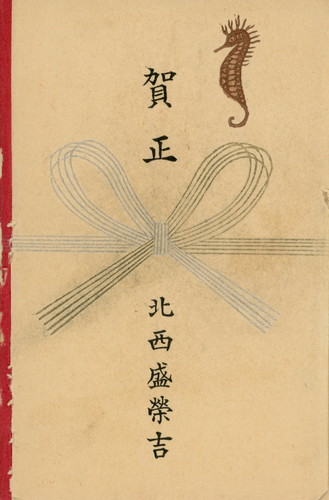 賀正
北西盛榮吉